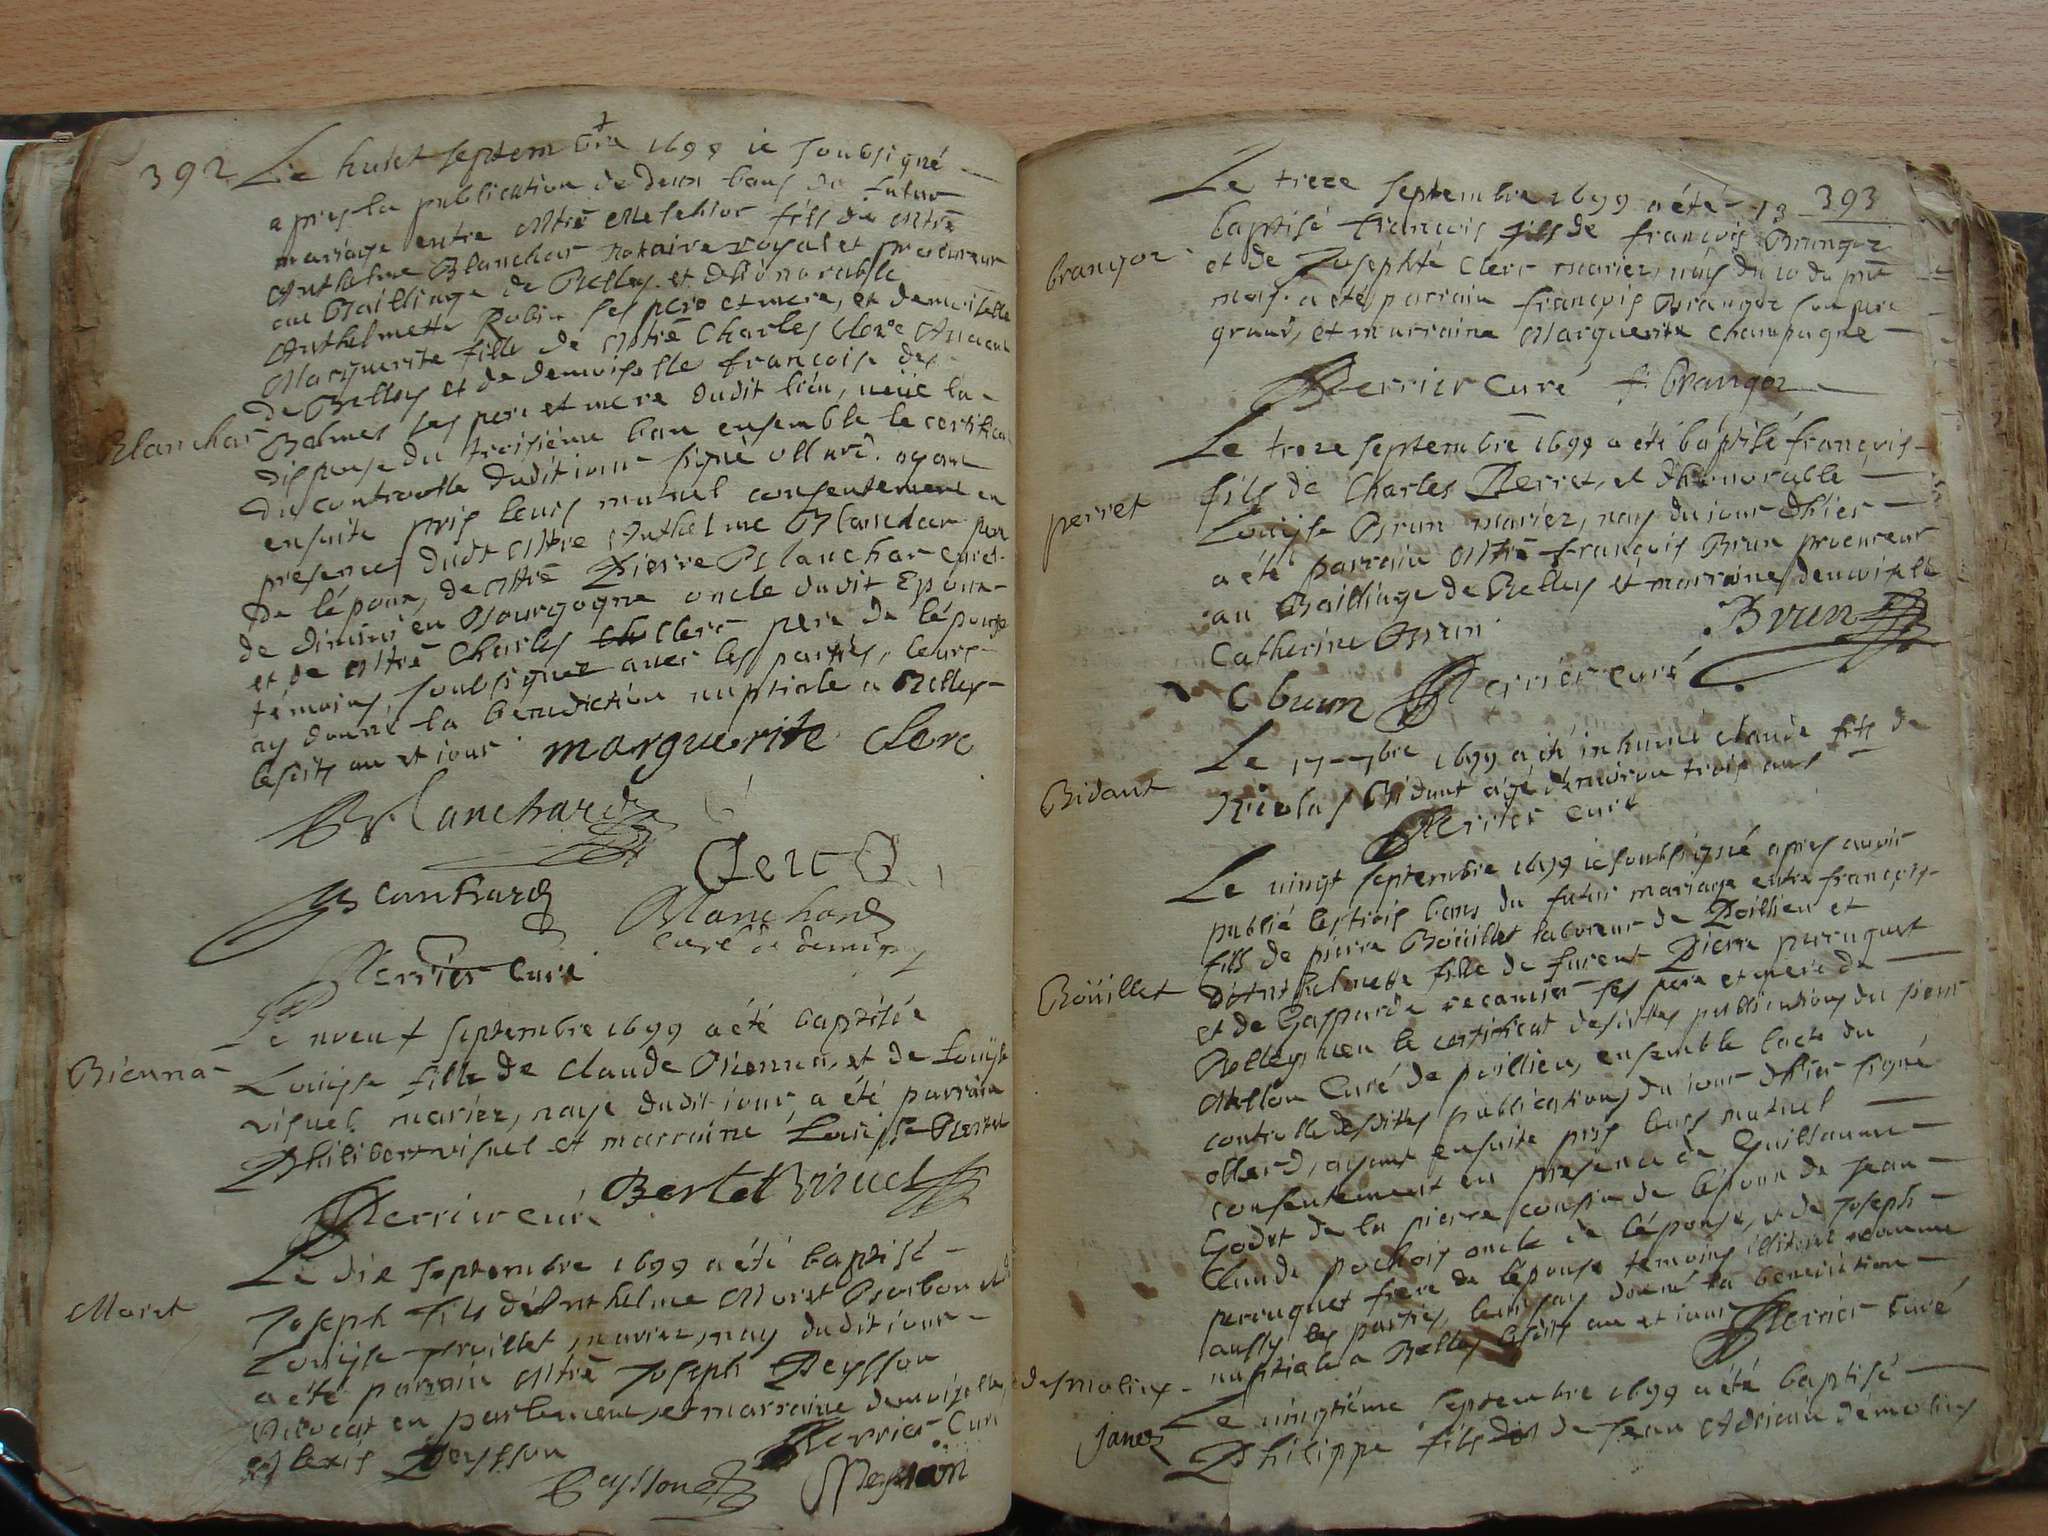 392
Le huict septembre 1699 ie soubsigné
apres la publication de deux bans du futur
mariage entre Mtre Melchior fils de Mtre
Anthelme Blanchar notaire royal et procureur
au Bailliage de Belley et d'honorable
Anthelmette Robin ses pere et mere, et demoiselle
Marguerite fille de Mtre Charles Clerc
de Belley et de demoiselle françoise des
Blanchar
Balmes ses pere et mere dudit lieu, veüe la
dispense du troisième ban ensemble le certificat
du controolle dudit iour signé ayant
ensuite pris leurs mutuel consentement en
presence dudt Mtre Anthelme Blanchar pere
de l'époux, de Mtre Pierre Blanchar curé
de en Bourgogne oncle dudit Epoux
et de Mtre Charles Clerc pere de l'épouse
témoins soubsignez avec les parties, leurs
ay donné la benediction nuptiale a Belley
lesdits an et iour
marguerite Clerc
Blanchard
Clerc
Blanchard
curé de
Perrier Curé
Le neuf septembre 1699 a été baptisée
Bienna
Louyse fille de Claude Bienna, et de Louyse
visuel mariez, naye dudit iour, a été parrain
Philibert visuel et marraine Louyse
Perrier curé
Bertet Visuel
Le dix septembre 1699 a été baptisé
Moret
Joseph fils d'Anthelme Moret et de
Louyse mariez, nay dudit iour
a été parrain Mtre Joseph Peysson
Advocat en parlement, et marraine demoizelle
Alexis Peysson
Perrier Curé
Peysson
393
Le treze septembre 1699 a été 13
brangoz
baptisé françois fils de françois Brangoz
et de Josephte Clerc mariez, nay du 10 du pnt
mois. a été parrain françois Brangoz son pere
grand, et marraine Marguerite Champagne
Perrier Curé f. brangoz
Le treze septembre 1699 a été baptisé françois
perret
fils de Charles Perret, et d'honorable
Louyse Brun mariez, nay du iour d'hier
a été parrain Mtre françois Brun procureur
au Bailliage de Belley et marraine demoiselle
Catherine Brun
Brun
C brun Perrier curé
Le 17 7bre 1699 a été inhumé claude fils de
Bidaut
Nicolas Bidaut agé d'environ trois ans
Perrier Curé
Le vingt septembre 1699 ie soubsigné apres avoir
publié les trois bans du futur mariage entre françois
fils de pierre Boüillet laboreur de Poillieu et
Boüillet
d'Anthelmette fille de furent Pierre perruquet
et de Gasparde recamier ses pere et mere de
Belley veu le certificat desdittes publications du sieur
Mellon Curé de poillieu, ensemble l'acte du
controlle desdittes publications du iour d'hier signé
ayant ensuite pris leurs mutuel
consentement en presence de Guillaume
Godet de la pierre cousin de l'époux de Jean
Claude pochois oncle de l'épouse, et de Joseph
perruquet frere de l'épouse temoins illiteré comme
aussy les parties, leurs ay donné la benediction
nuptiale a Belley lesdits an et iour Perrier Curé
desmolins
Le vingtiéme septembre 1699 a été baptisé
Janez
Philippe fils de Jean Adrian démolins